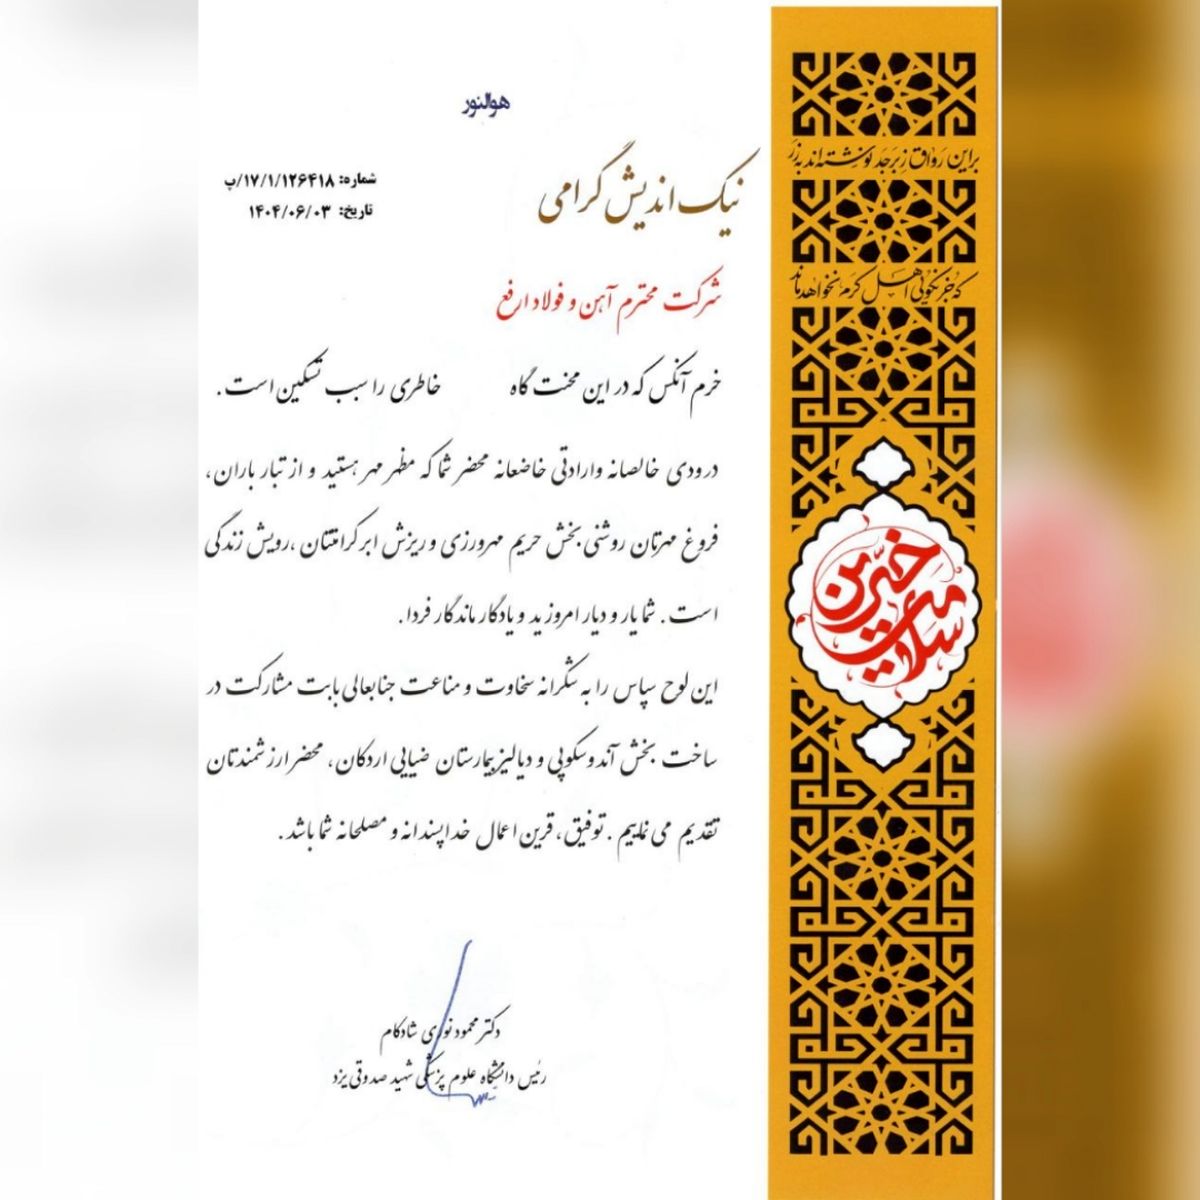 هوالنور
شماره: ۱۷/۱/۱۲۶۴۱۸/پ
تاریخ: ۱۴۰۴/۰۶/۰۳
نیک اندیش گرامی
شرکت محترم آهن و فولاد ارفع
خرم آنکس که در این محنت گاه خاطری را سبب تسکین است.
درودی خالصانه وارادتی خاضعانه محضر شما که مظهر مهر هستید و از تبار باران،
فروغ مهرتان روشنی بخش حریم مهرورزی و ریزش ابر کرامتتان، رویش زندگی
است. شما یار و دیار امروزید و یادگار ماندگار فردا.
این لوح سپاس را به شکرانه سخاوت و مناعت جنابعالی بابت مشارکت در
ساخت بخش آندوسکوپی و دیالیز بیمارستان ضیایی اردکان، محضر ارزشمندتان
تقدیم می نماییم. توفیق، قرین اعمال خداپسندانه و مصلحانه شما باشد.
دکتر محمود نوری شادکام
رئیس دانشگاه علوم پزشکی شهید صدوقی یزد
براین رواق زبرجد نوشته اند به زر
که جز نکویی اهل کرم نخواهد ماند
خیرین سلامت